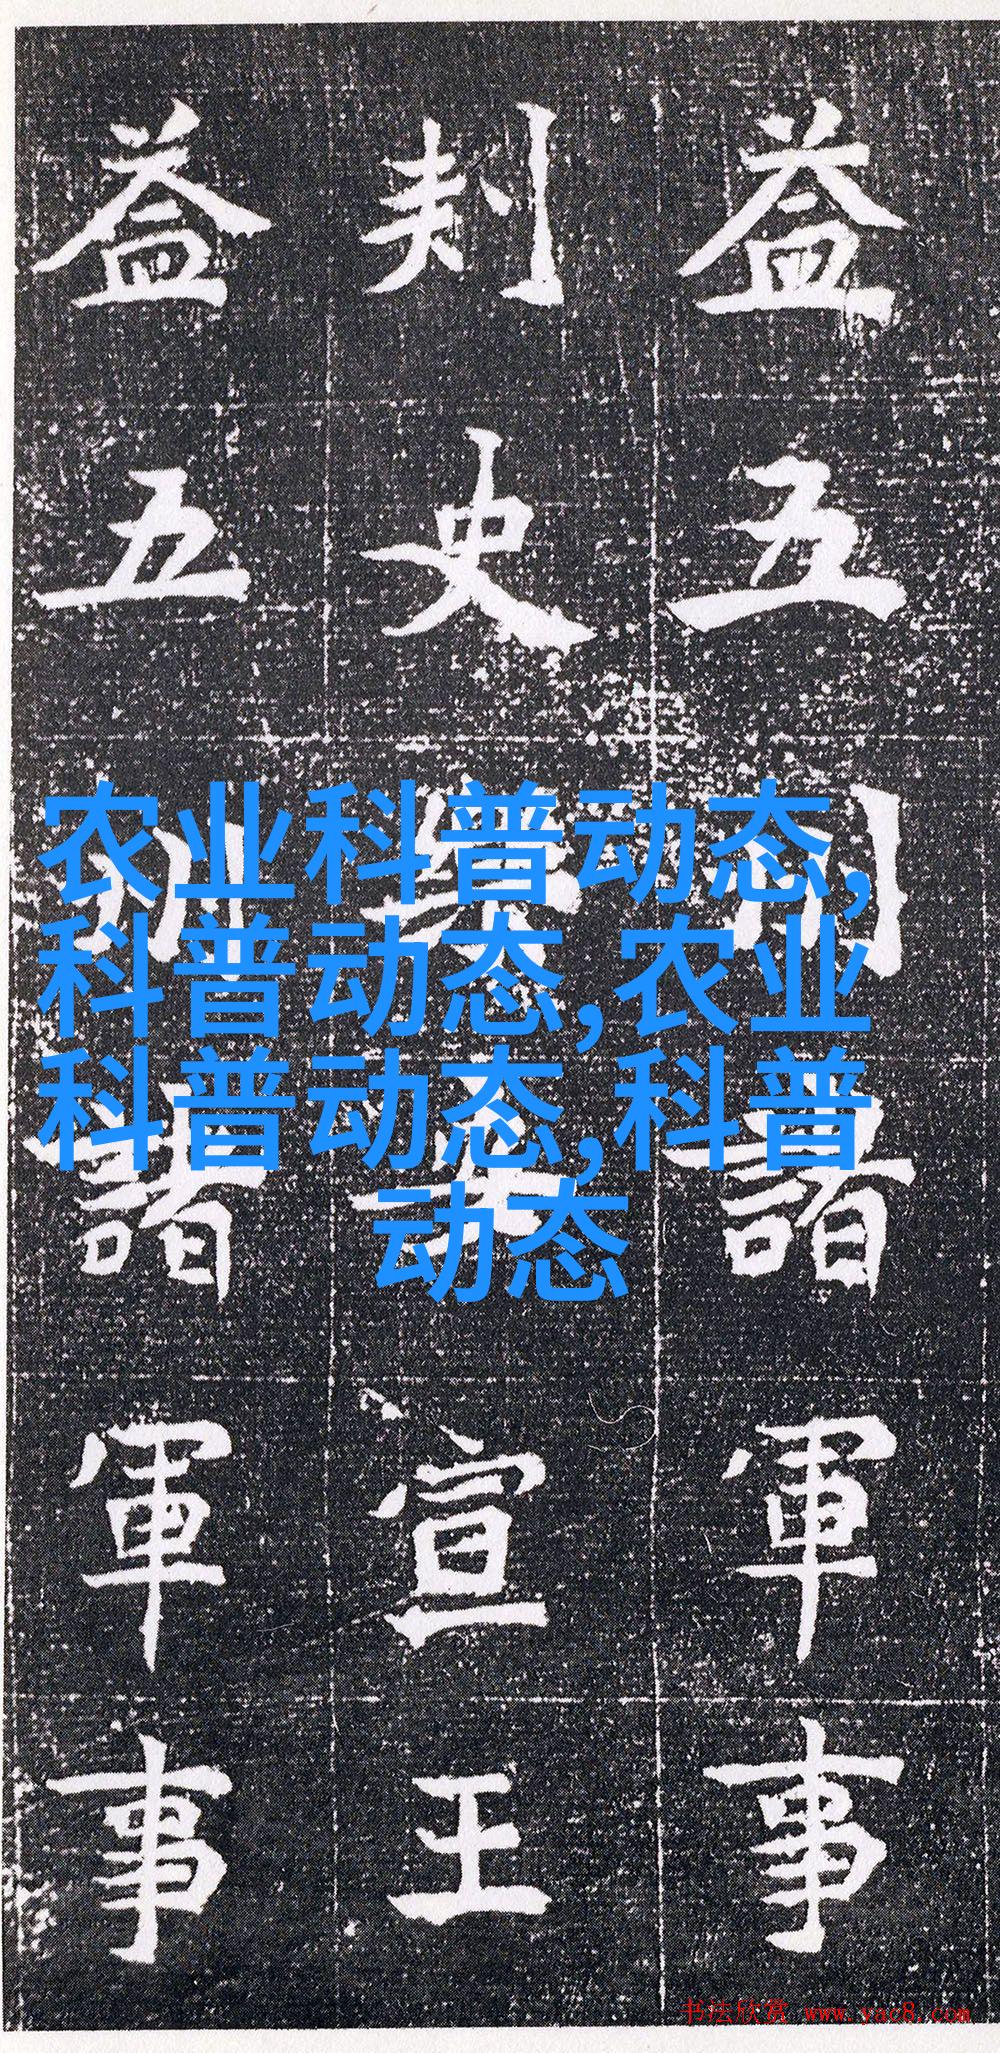 益五州諸軍事
刺史宣王
益五州諸軍事
农业科普动态,
科普动态,农业
科普动态,科普
动态
书法欣赏 www.yac8.com